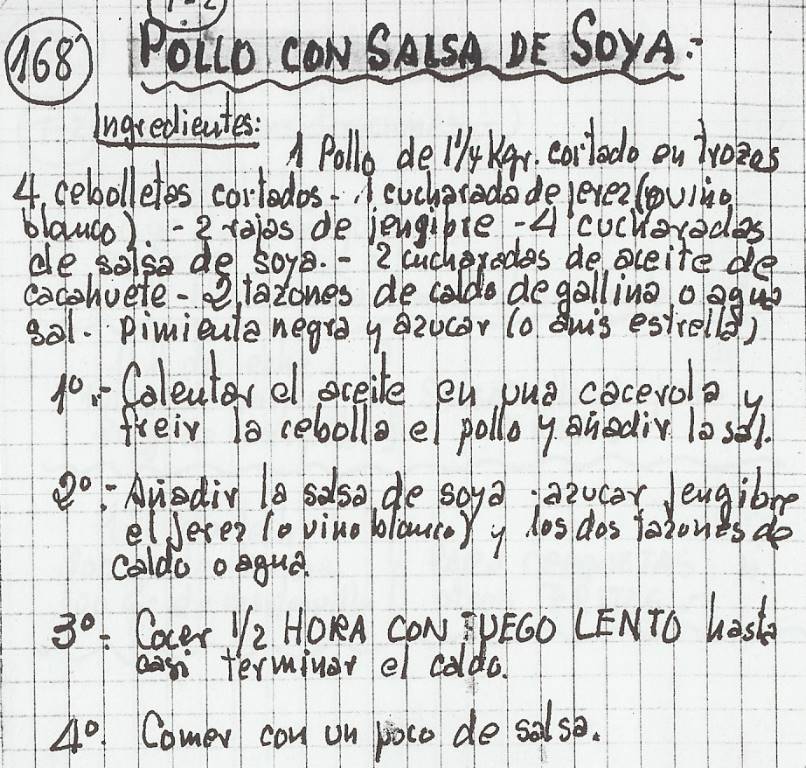 168
POLLO CON SALSA DE SOYA.-
Ingredientes:
1 Pollo de 1 1/4 Kgr. cortado en trozos
4 cebolletas cortados - 1 cucharada de jerez (o vino
blanco). - 2 rajas de jengibre - 4 cucharadas
de salsa de soya. - 2 cucharadas de aceite de
cacahuete - 2 tazones de caldo de gallina o agua
sal - pimienta negra y azucar (o anis estrella)
1º.- Calentar el aceite en una cacerola y
freir la cebolla el pollo y añadir la sal.
2º.- Añadir la salsa de soya - azucar jengibre
el jerez (o vino blanco) y los dos tazones de
caldo o agua.
3º.- Cocer 1/2 HORA CON FUEGO LENTO hasta
casi terminar el caldo.
4º. Comer con un poco de salsa.